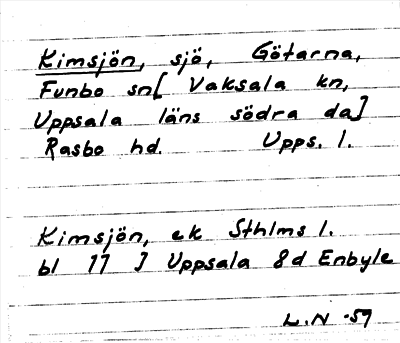 Kimsjön, sjö, Götarna,
Funbo sn[ Vaksala kn,
Uppsala läns södra da]
Rasbo hd. Upps. l.
Kimsjön, ek Sthlms l.
bl 77 J Uppsala 8d Enbyle
L.N -57